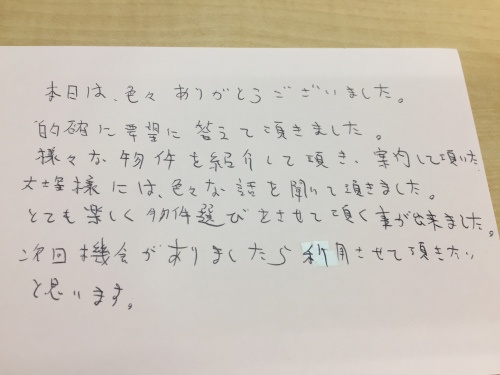 本日は、色々ありがとうございました。
的確に要望に答えて頂きました。
様々な物件を紹介して頂き、案内して頂いた
様には、色々な話を聞いて頂きました。
とても楽しく物件選びをさせて頂く事が出来ました。
次回機会がありましたら利用させて頂きたい
と思います。